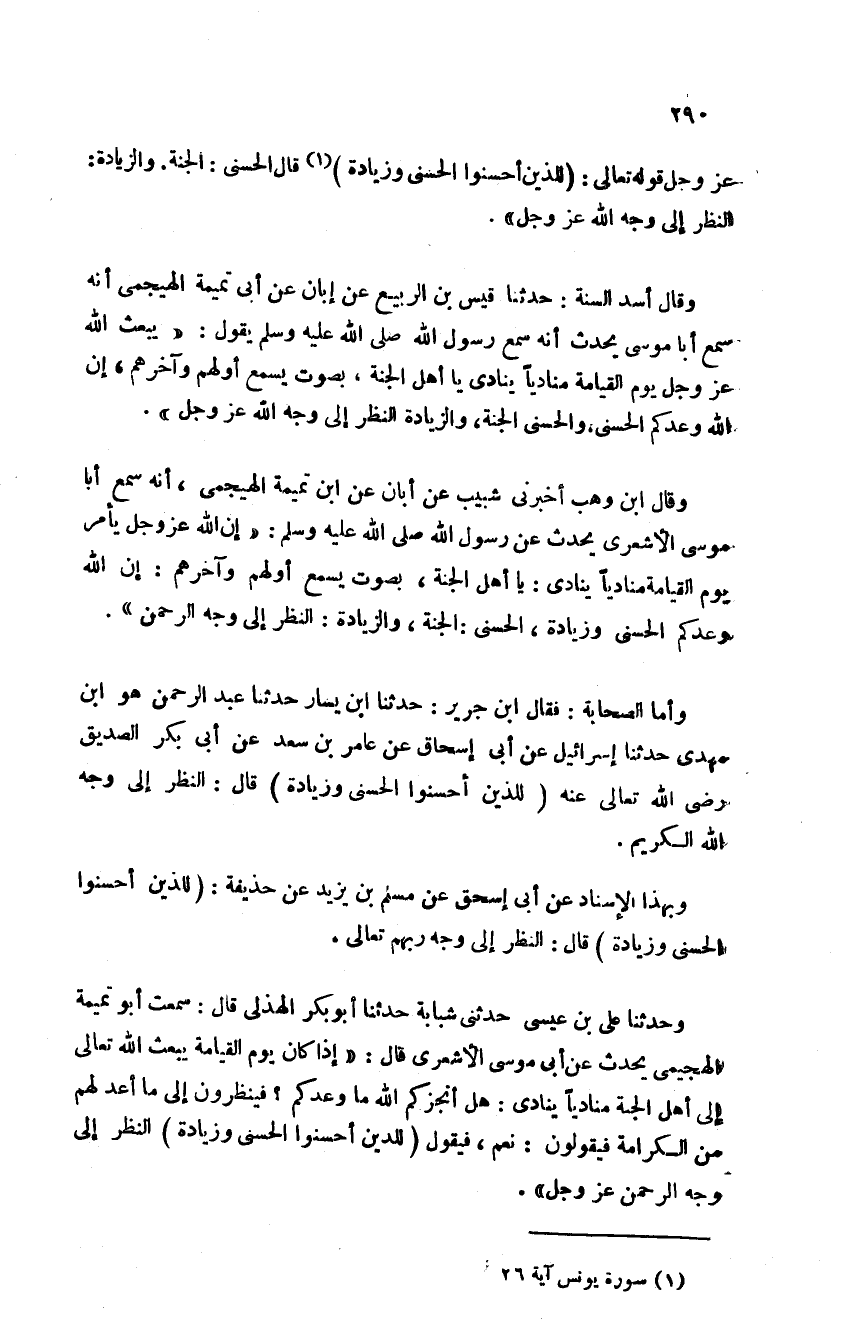 ٢٩٠
عز وجل قوله تعالى : (للذين أحسنوا الحسنى وزيادة )(١) قال الحسنى : الجنة . والزيادة :
النظر إلى وجه الله عز وجل» .
وقال أسد السنة : حدثنا قيس بن الربيع عن إبان عن أبى تميمة الهيجمى أنه
سمع أبا موسى يحدث أنه سمع رسول الله صلى الله عليه وسلم يقول : « يبعث الله
عز وجل يوم القيامة منادياً ينادى يا أهل الجنة ، بصوت يسمع أولهم وآخرهم ، إن
الله وعدكم الحسنى،والحسنى الجنة، والزيادة النظر إلى وجه الله عز وجل » .
وقال ابن وهب أخبرنى شبيب عن أبان عن ابن تميمة الهيجمى ، أنه سمع أبا
موسى الأشعرى يحدث عن رسول الله صلى الله عليه وسلم : « إن الله عز وجل يأمر
يوم القيامة منادياً ينادى : يا أهل الجنة ، بصوت يسمع أولهم وآخرهم : إن الله
وعدكم الحسنى وزيادة ، الحسنى : الجنة ، والزيادة : النظر إلى وجه الرحمن » .
وأما الصحابة : فقال ابن جرير : حدثنا ابن يسار حدثنا عبد الرحمن هو ابن
مهدى حدثنا إسرائيل عن أبى إسحاق عن عامر بن سعد عن أبى بكر الصديق
رضى الله تعالى عنه ( للذين أحسنوا الحسنى وزيادة ) قال : النظر إلى وجه
الله الكريم .
وبهذا الإسناد عن أبى إسحق عن مسلم بن يزيد عن حذيفة : ( للذين أحسنوا
الحسنى وزيادة ) قال : النظر إلى وجه ربهم تعالى .
وحدثنا على بن عيسى حدثنى شبابة حدثنا أبو بكر الهذلى قال : سمعت أبو تميمة
الهجيمى يحدث عن أبى موسى الأشعرى قال : « إذا كان يوم القيامة يبعث الله تعالى
إلى أهل الجنة منادياً ينادى : هل أنجزكم الله ما وعدكم ؟ فينظرون إلى ما أعد لهم
من الكرامة فيقولون : نعم ، فيقول ( للدين أحسنوا الحسنى وزيادة ) النظر إلى
وجه الرحمن عز وجل» .
(١) سورة يونس آية ٢٦